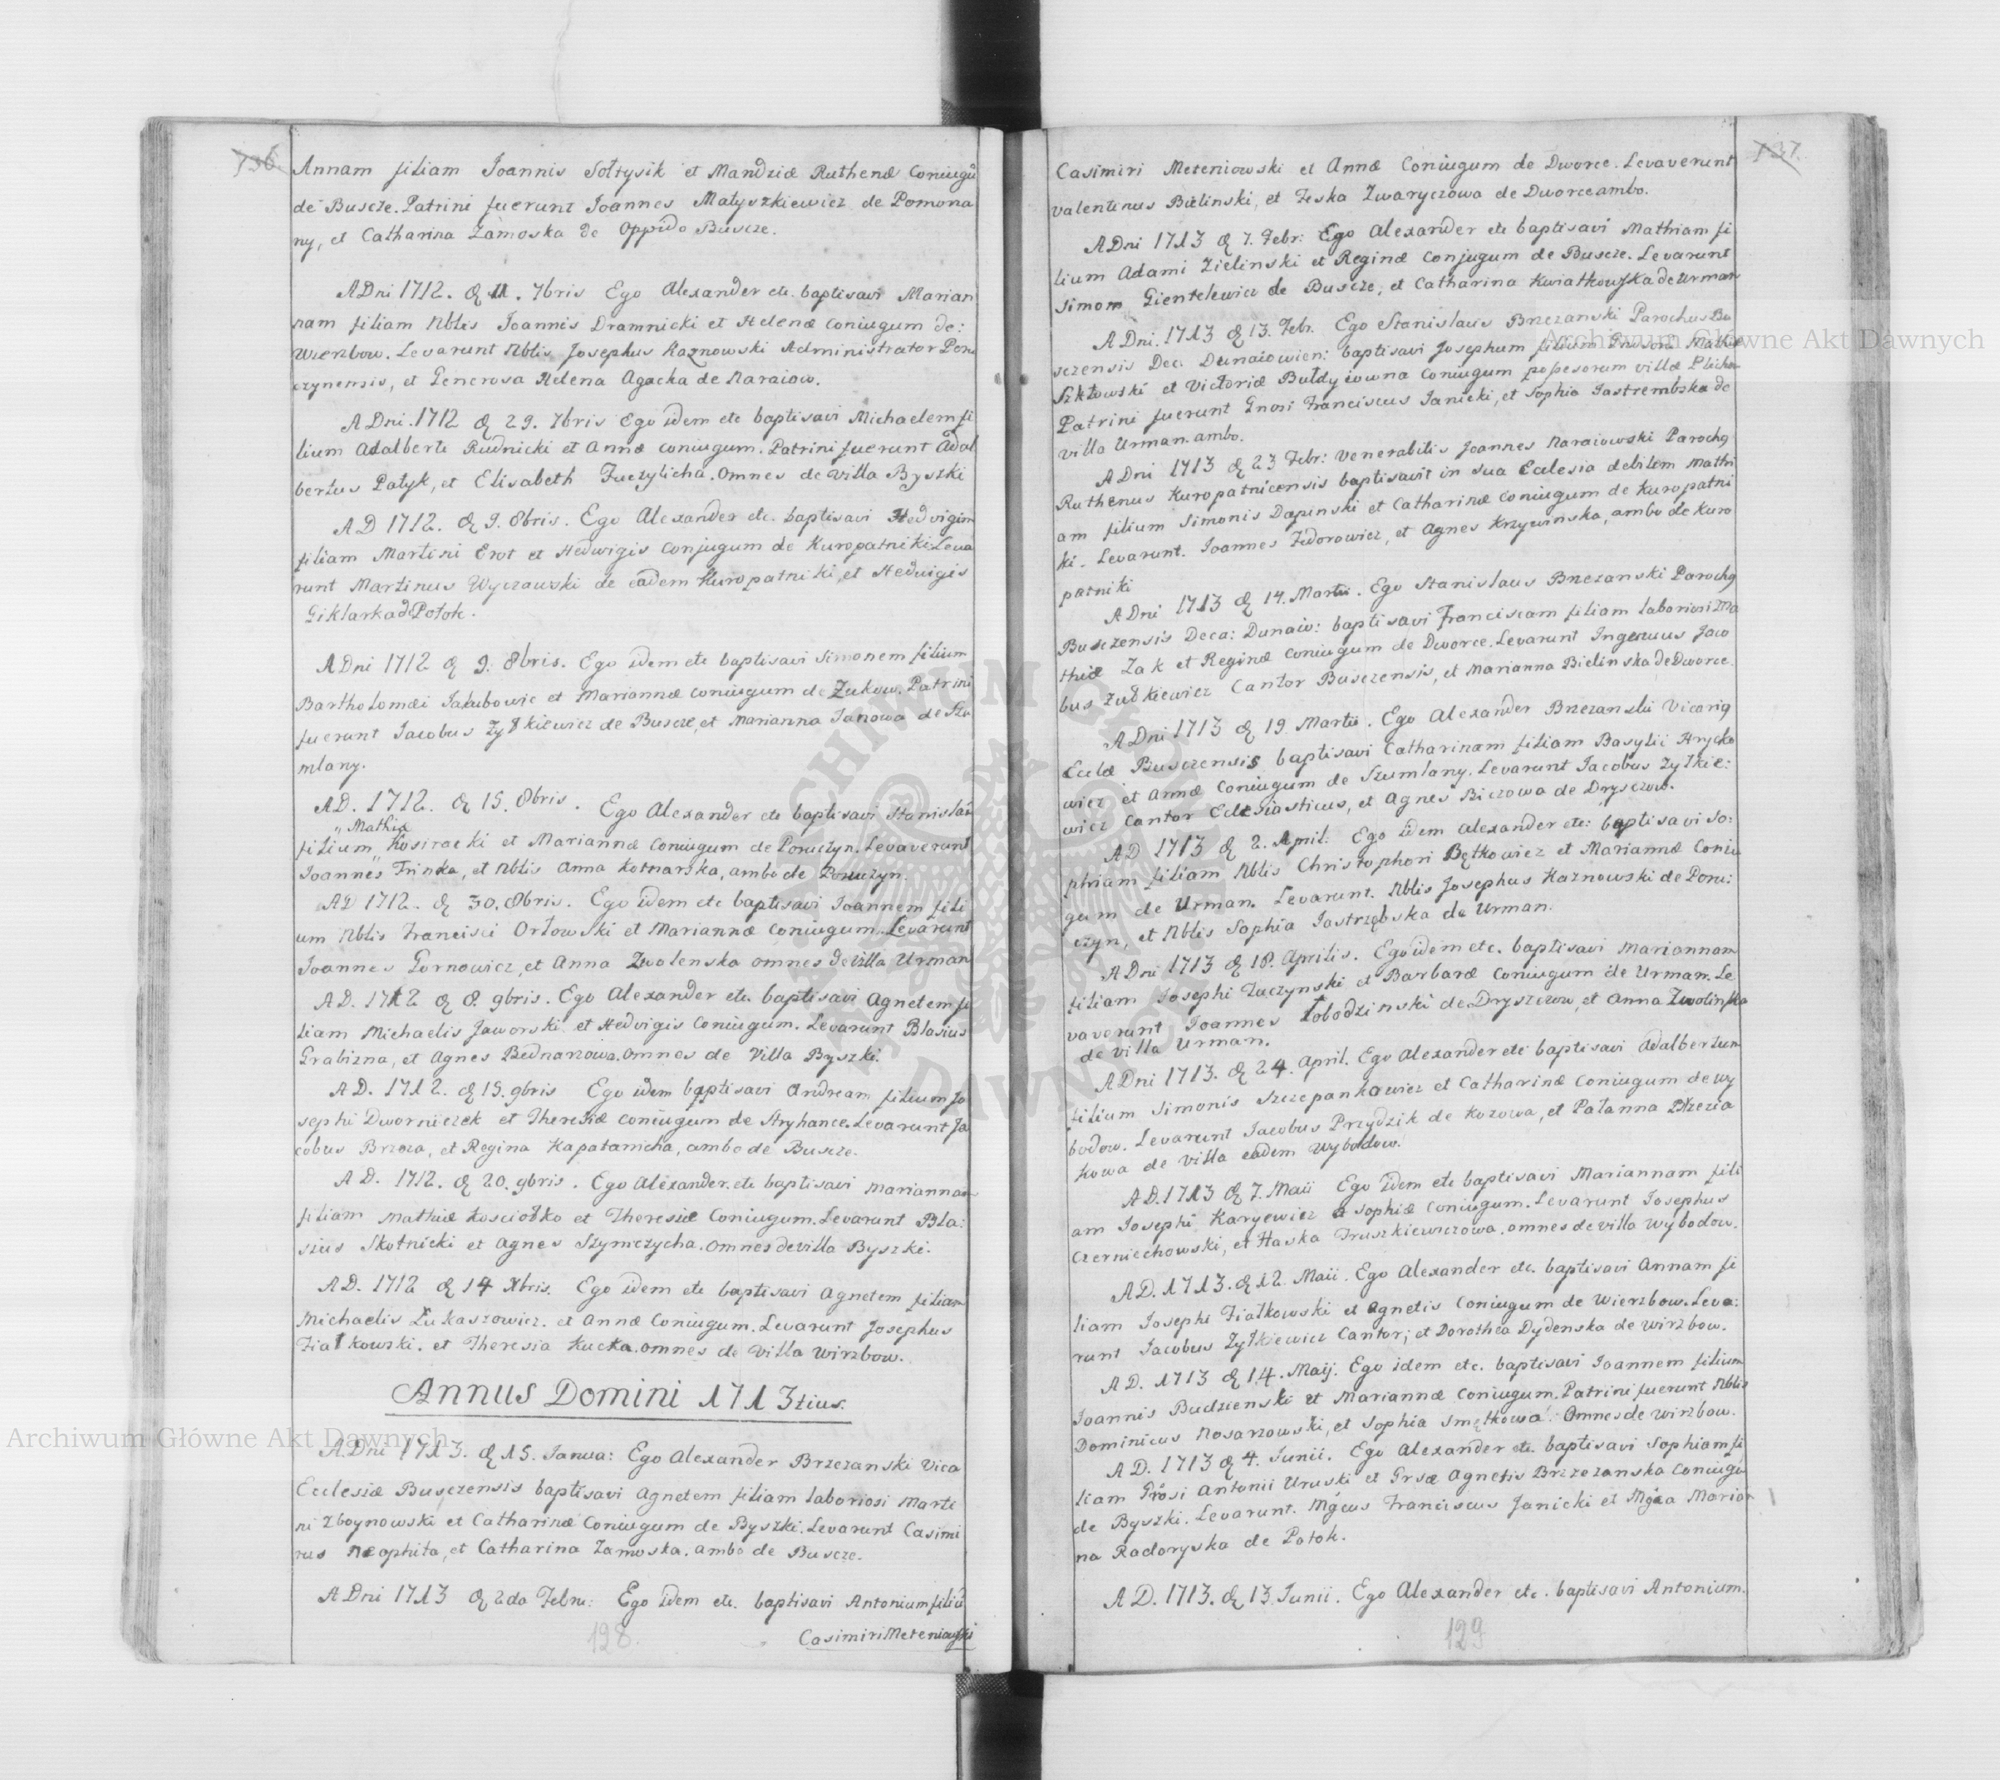 136.
Annam filiam Joannis Sołtysik et Mandziæ Ruthenæ Coniugũ
de Buscze. Patrini fuerunt Joannes Matyszkiewicz de Pomona
ny, et Catharina Zamoska de Oppido Buscze.
A Dni 1712. d. 11. 7bris Ego Alexander etc. baptisavi Marian
nam filiam Nblis Joannis Dramnicki et Helenæ coniugum de:
Wierzbow. Levarunt Nblis Josephus Kaznowski Administrator Poru
czynensis, et Generosa Helena Agacka de Naraiow.
A Dni. 1712 d. 29. 7bris Ego idem etc baptisavi Michaelem fi
lium Adalberti Rudnicki et Annæ coniugum. Patrini fuerunt Adal
bertus Patyk, et Elisabeth Fuczylicha. Omnes de villa Byszki
A D 1712. d. 9. 8bris. Ego Alexander etc. baptisavi Hedvigim
filiam Martini Erot et Hedwigis Conjugum de Kuropatniki Leva
runt Martinus Wyczawski de eadem Kuropatniki, et Hedvigis
Giklarka de Potok.
A Dni 1712 d. 9. 8bris. Ego idem etc baptisavi Simonem filium
Bartholomæi Jakubowic et Mariannæ coniugum de Zukow. Patrini
fuerunt Jacobus Zyłkiewicz de Buscze, et Marianna Janowa de Szu
mlany.
A D. 1712. d. 15. 8bris. Ego Alexander etc baptisavi Stanislaũ
" Mathiæ
filium " Kosiracki et Mariannæ Coniugum de Poruczyn. Levaverunt
Joannes Trinka, et Nblis Anna Kotnarska, ambo de Poruczyn.
A D 1712. d. 30. 8bris. Ego idem etc baptisavi Joannem fili
um Nblis Francisci Orłowski et Mariannæ coniugum. Levarunt
Joannes Gornowicz, et Anna Zwolenska omnes de villa Urman
A D. 1712 d. 8. 9bris. Ego Alexander etc. baptisavi Agnetem fi
liam Michaelis Jaworski et Hedvigis coniugum. Levarunt Blasius
Grabizna, et Agnes Bednarzowa. Omnes de Villa Byszki.
A D. 1712. d. 15. 9bris Ego idem baptisavi Andream filium Jo
sephi Dworniczek et Theresiæ coniugum de Stryhance. Levarunt Ja
cobus Brzoza, et Regina Kapatanicha, ambo de Buscze.
A D. 1712. d. 20. 9bris. Ego Alexander etc baptisavi Mariannam
filiam Mathiæ Kosciołko et Theresiæ Coniugum. Levarunt Bla:
sius Skotnicki et Agnes Szymczycha. omnes de villa Byszki.
A D. 1712 d. 14 Xbris. Ego idem etc baptisavi Agnetem filiam
Michaelis Łukaszowicz. et Annæ coniugum. Levarunt Josephus
Fiałkowski. et Theresia Kucka. omnes de villa Wirzbow.
Annus Domini 1713tius.
A Dni 1713. d. 15. Janua: Ego Alexander Brzezanski Vica
Ecclesiæ Busczensis baptisavi Agnetem filiam laboriosi Marti
ni Zboynowski et Catharinæ Coniugum de Byszki. Levarunt Casimi
rus Neophita, et Catharina Zamoska. ambo de Buscze.
A Dni 1713 d. 2da Febru: Ego idem etc. baptisavi Antonium filiũ
Casimiri Meteniowski
128.
137.
Casimiri Meteniowski et Annæ Coniugum de Dworce. Levaverunt
Valentinus Bielinski, et Feska Zwaryczowa de Dworce ambo.
A Dni 1713 d. 7. Febr: Ego Alexander etc baptisavi Mathiam fi
lium Adami Zielinski et Reginæ Conjugum de Buscze. Levarunt
Simon Gientelewicz de Buscze, et Catharina Kwiatkowska de Urman
A Dni. 1713 d. 13. Febr. Ego Stanislaus Brzezanski Parochus Bu
sczensis Dec. Dunaiowien: baptisavi Josephum filium Gnusoru Mathiæ
Szkłowski et Victoriæ Bułdyiowna Coniugum possesorum villæ Plichow
Patrini fuerunt Gnosi Franciscus Janicki, et Sophia Jastrembska de
villa Urman. ambo.
A Dni 1713 d. 23 Febr: Venerabilis Joannes Naraiowski Parochg
Ruthenus Kuropatnicensis baptisavit in sua Eclesia debilem Mathi
am filium Simonis Dapinski et Catharinæ Coniugum de Kuropatni
ki. Levarunt. Joannes Fidorowicz, et Agnes Krzywinska, ambo de Kuro
patniki
A Dni 1713 d. 14. Martii. Ego Stanislaus Brzezanski Parochg
Busczensis Deca: Dunaio: baptisavi Franciscam filiam laboriosi Ma
thiæ Zak et Reginæ Coniugum de Dworce. Levarunt Ingenuus Jaco
bus Zułkiewicz Cantor Busczensis, et Marianna Bielinska de Dworce.
A Dni 1713 d. 19. Martii. Ego Alexander Brzezanski Vicarig
Eclæ Busczensis baptisavi Catharinam filiam Basylii Hrycko
wicz et Annæ Coniugum de Szumlany. Levarunt Jacobus Zyłkie:
wicz Cantor Eclesiasticus, et Agnes Biczowa de Dryszczow.
A D 1713 d. 2. April: Ego idem Alexander etc: baptisavi So:
phiam filiam Nblis Christophori Bętkowicz et Mariannæ Coniu
gum de Urman. Levarunt. Nblis Josephus Kaznowski de Poru:
czyn, et Nblis Sophia Jastrzębska de Urman.
A Dni 1713 d. 18. Aprilis. Ego idem etc. baptisavi Mariannam
filiam Josephi Tuczynski et Barbaræ Coniugum de Urman. Le
vaverunt Joannes Łobodzinski de Dryszczow, et Anna Zwolinska
de villa Urman.
A Dni 1713. d. 24. April. Ego Alexander etc baptisavi Adalbertum
filium Simonis Szczepankowicz et Catharinæ Coniugum de Wy
bodow. Levarunt Jacobus Przydzik de Kozowa, et Pałanna Brzezia
kowa de villa eadem Wybodow.
A D. 1713 d. 7. Maii Ego idem etc baptisavi Mariannam fili
am Josephi Karyewicz et Sophiæ Coniugum. Levarunt Josephus
Czerniechowski, et Haska Truszkiewiczowa. omnes de villa Wybodow.
A D. 1713. d. 12. Maii. Ego Alexander etc. baptisavi Annam fi
liam Josephi Fiałkowski et Agnetis Coniugum de Wierzbow. Leva:
runt Jacobus Zyłkiewicz Cantor; et Dorothea Dydenska de Wirzbow.
A D. 1713 d. 14. Maij. Ego idem etc. baptisavi Joannem filium
Joannis Budzienski et Mariannæ Coniugum. Patrini fuerunt Nblis
Dominicus Nosarzowski, et Sophia Smętkowa. Omnes de Wirzbow.
A D. 1713 d. 4. Junii. Ego Alexander etc. baptisavi Sophiam fi
liam Grosi Antonii Uruski et Grsæ Agnetis Brzozanska Coniugũ
de Byszki. Levarunt. Mgcus Franciscus Janicki et Mgca Maria
na Radoryska de Potok.
A D. 1713. d. 13 Junii. Ego Alexander etc. baptisavi Antonium.
129
Archiwum Główne Akt Dawnych
Archiwum Główne Akt Dawnych
ARCHIWUM GŁÓWNE AKT DAWNYCH